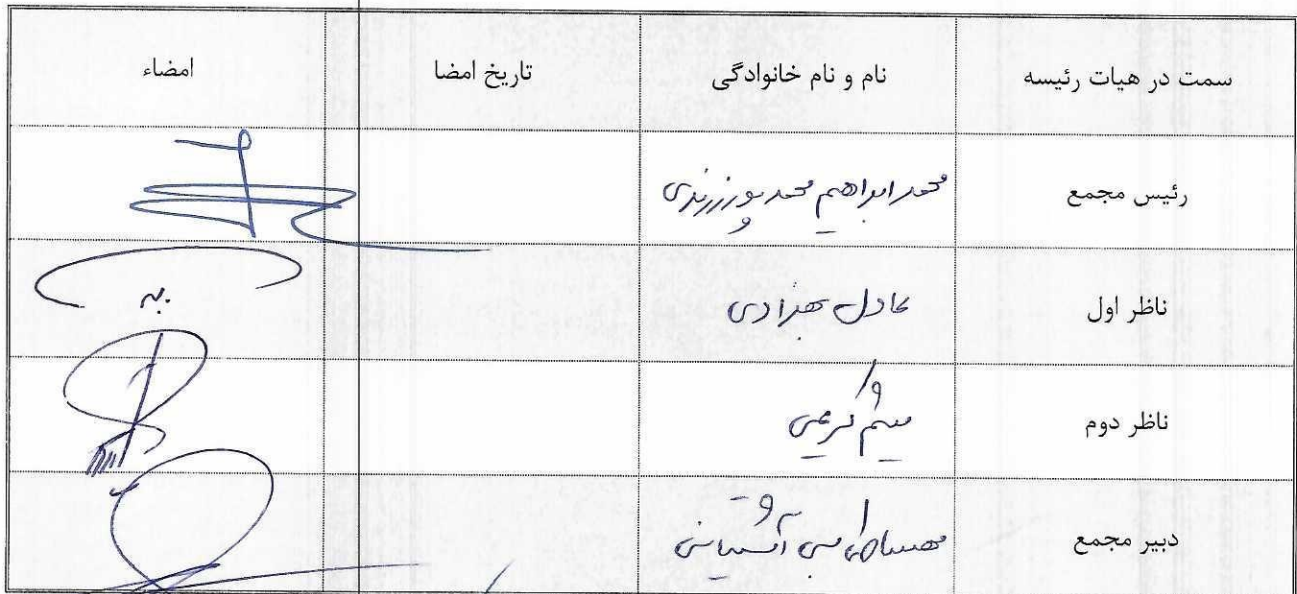 سمت در هیات رئیسه	نام و نام خانوادگی	تاریخ امضا	امضاء
رئیس مجمع	محمد ابراهیم محمد پور زرندی
ناظر اول	عادل بهزادی
ناظر دوم	میثم کریمی
دبیر مجمع	آشتیانی